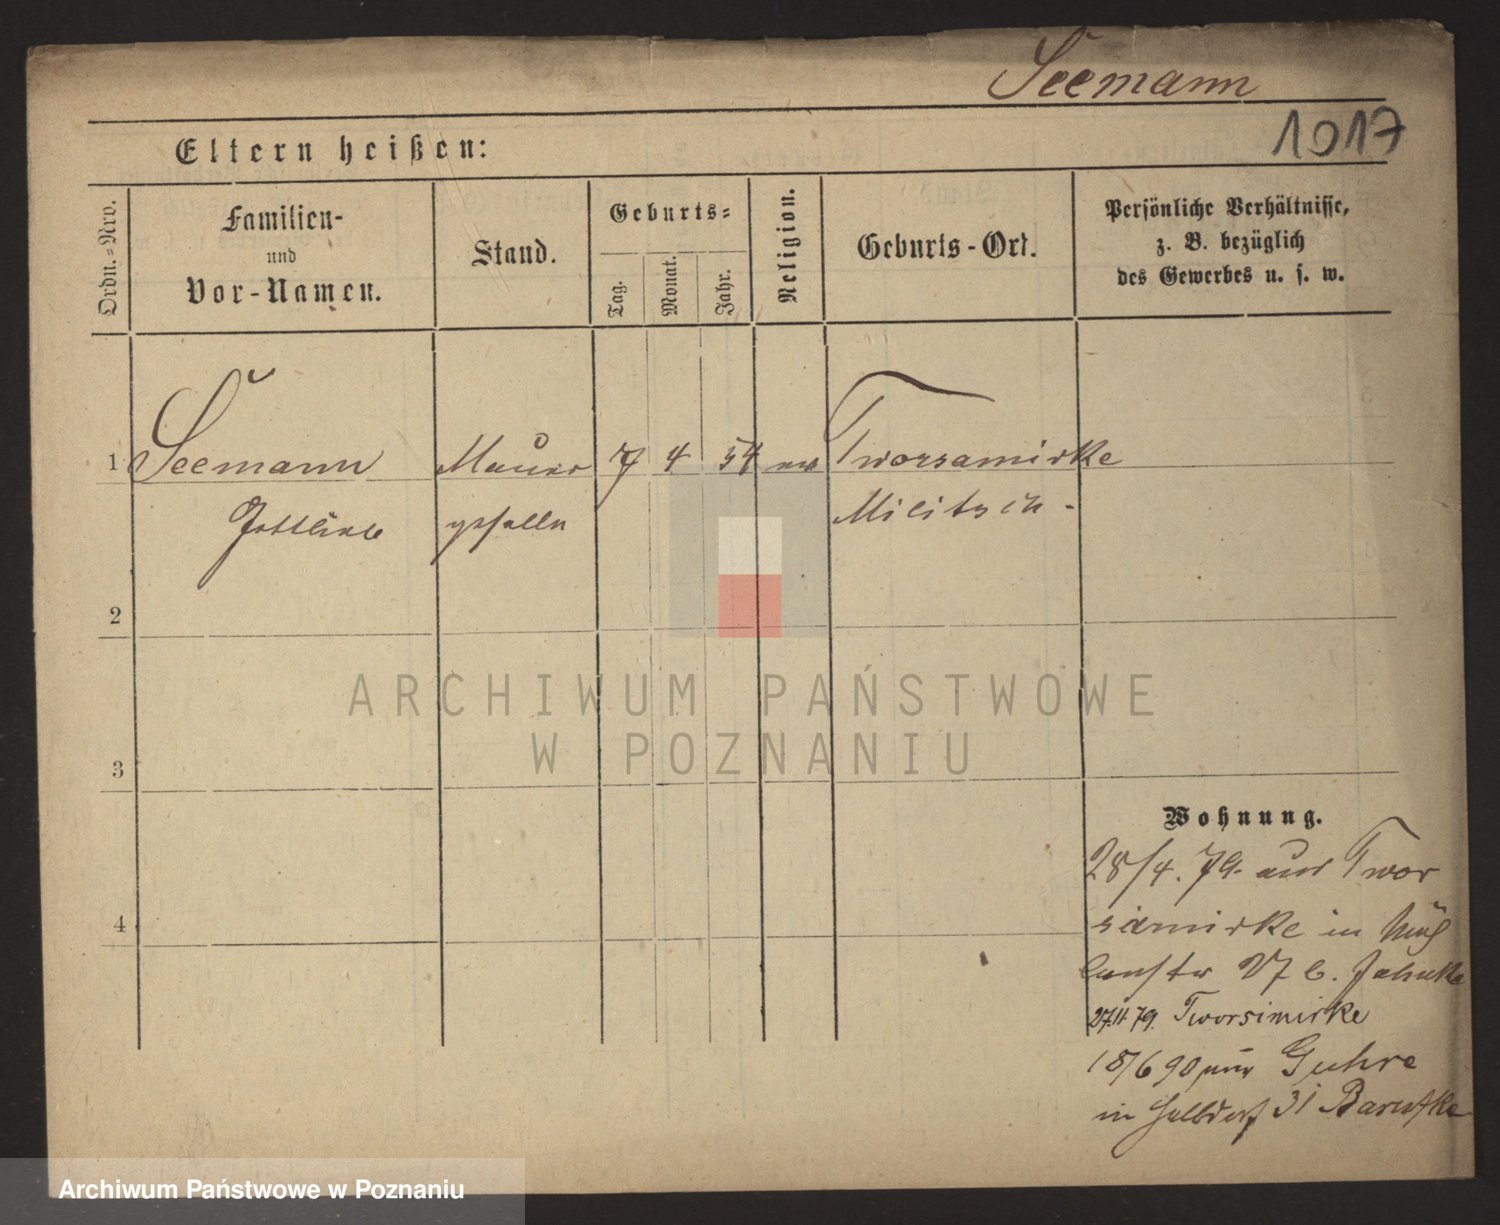 Seemann
1017
Eltern heißen:
Ordn.-Nro.
Familien-
und
Vor-Namen.
Stand.
Geburts-
Tag.
Monat.
Jahr.
Religion.
Geburts-Ort.
Persönliche Verhältnisse,
z. B. bezüglich
des Gewerbes u. s. w.
1 Seemann Maurer 7 4 54 ev Tworsamirke
Gottlieb geselle Militsch.
2
3
4
ARCHIWUM PAŃSTWOWE
W POZNANIU
Wohnung.
28/4. 79. aus Twor
samirke in Müh
lenstr 27 b.
27.11 79. Tworsimirke
18/6 90 aus Guhre
in Halbdorf 31
Archiwum Państwowe w Poznaniu